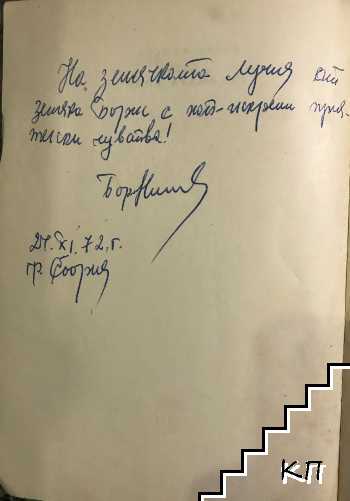 На землячката Лучия от
земляка Борис с най-искрени прия-
телски чувства!
24.XI.72.г.
гр. София
КП